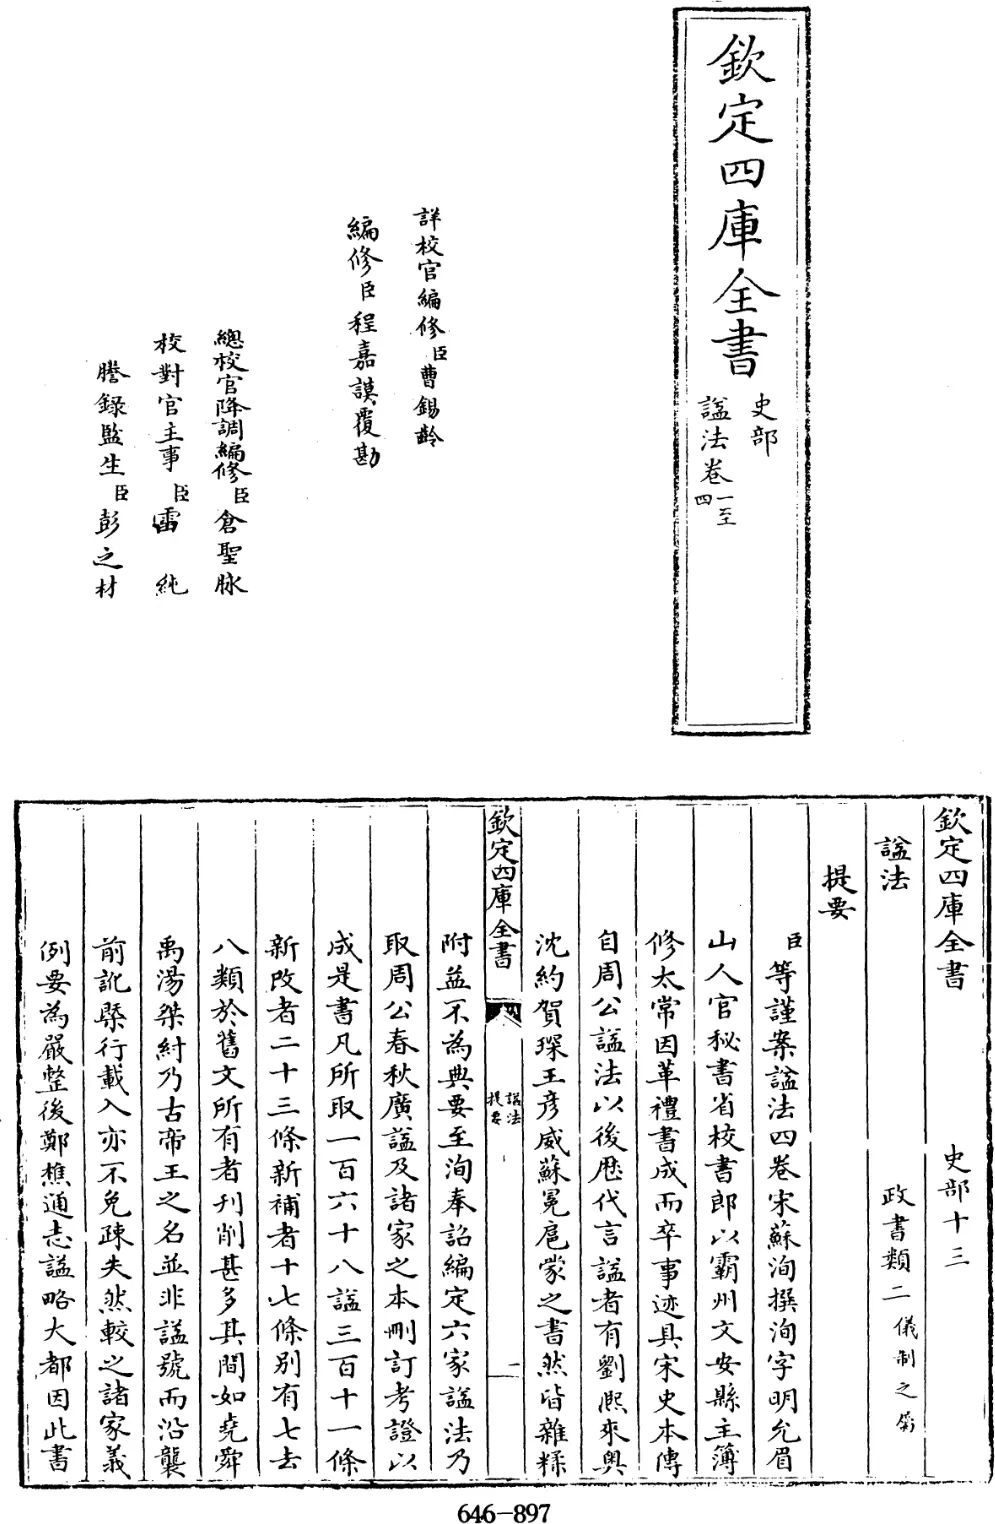 欽定四庫全書
史部
諡法卷一至四
詳校官編修臣曹錫齡
編修臣程嘉謨覆勘
總校官降調編修臣倉聖脉
校對官主事臣雷純
謄錄監生臣彭之材
欽定四庫全書 史部十三
諡法 政書類二 儀制之屬
提要
臣等謹案諡法四卷宋蘇洵撰洵字明允眉
山人官秘書省校書郎以霸州文安縣主簿
修太常因革禮書成而卒事迹具宋史本傳
自周公諡法以後歴代言諡者有劉熙來奥
沈約賀琛王彦威蘇冕扈蒙之書然皆雜糅
欽定四庫全書
諡法
提要
一
附益不為典要至洵奉詔編定六家諡法乃
取周公春秋廣諡及諸家之本刪訂考證以
成是書凡所取一百六十八諡三百十一條
新改者二十三條新補者十七條別有七去
八類於舊文所有者刊削甚多其間如堯舜
禹湯桀紂乃古帝王之名並非諡號而沿襲
前訛槩行載入亦不免疎失然較之諸家義
例要為嚴整後鄭樵通志諡略大都因此書
646-897